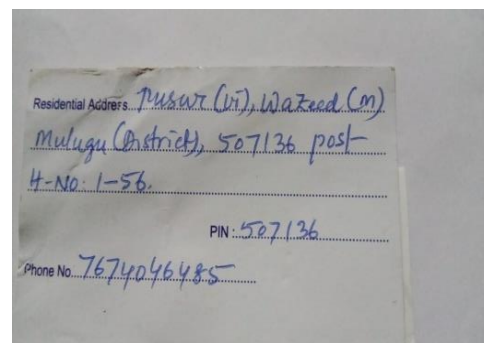 Residential Address. Pusur (vi), Wazeed (m)
Mulugu (District), 507136 post-
H-NO: 1-56.
PIN: 507136
Phone No. 7674046485